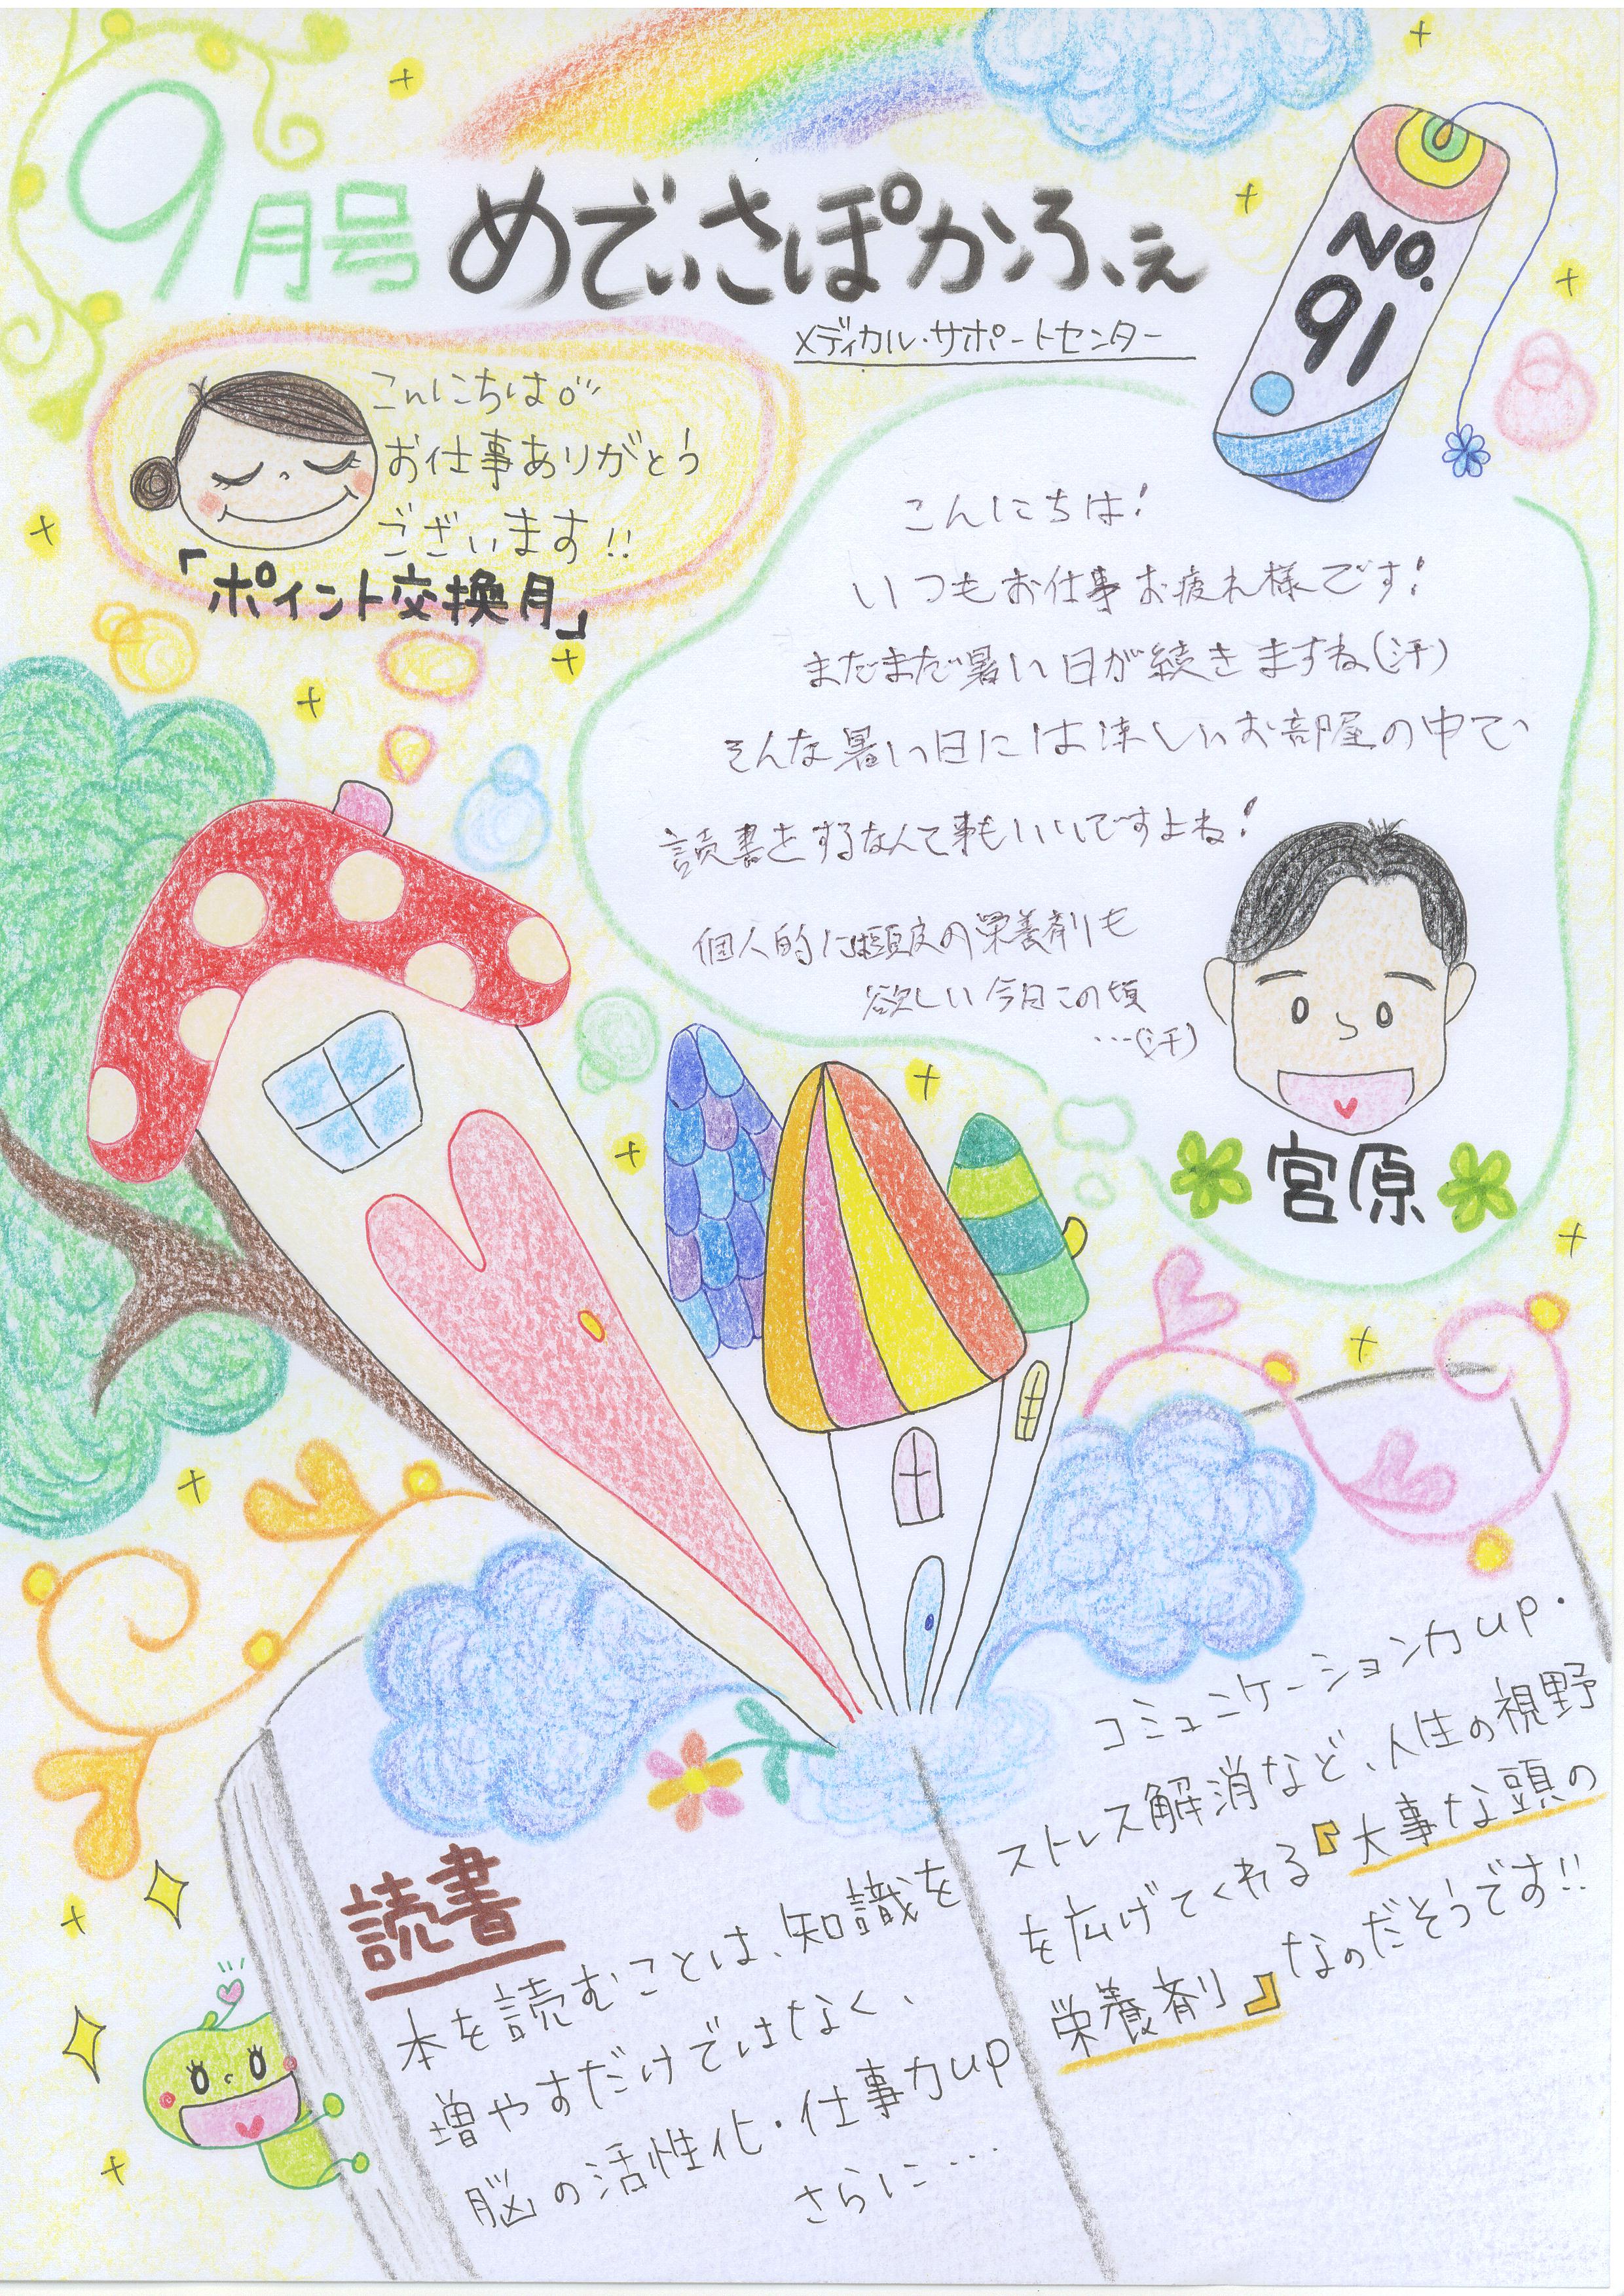 9月号
めでぃさぽかふぇ
メディカル・サポートセンター
No.
91
こんにちは
お仕事ありがとう
ございます!!
「ポイント交換月」
こんにちは!
いつもお仕事お疲れ様です!
まだまだ暑い日が続きますね(汗)
そんな暑い日には涼しいお部屋の中で、
読書をするなんて事もいいですよね!
個人的には頭皮の栄養剤も
欲しい今日この頃
…(汗)
宮原
読書
本を読むことは、知識を
増やすだけではなく、
脳の活性化・仕事力up
さらに…
コミュニケーション力up・
ストレス解消など、人生の視野
を広げてくれる『大事な頭の
栄養剤』なのだそうです!!